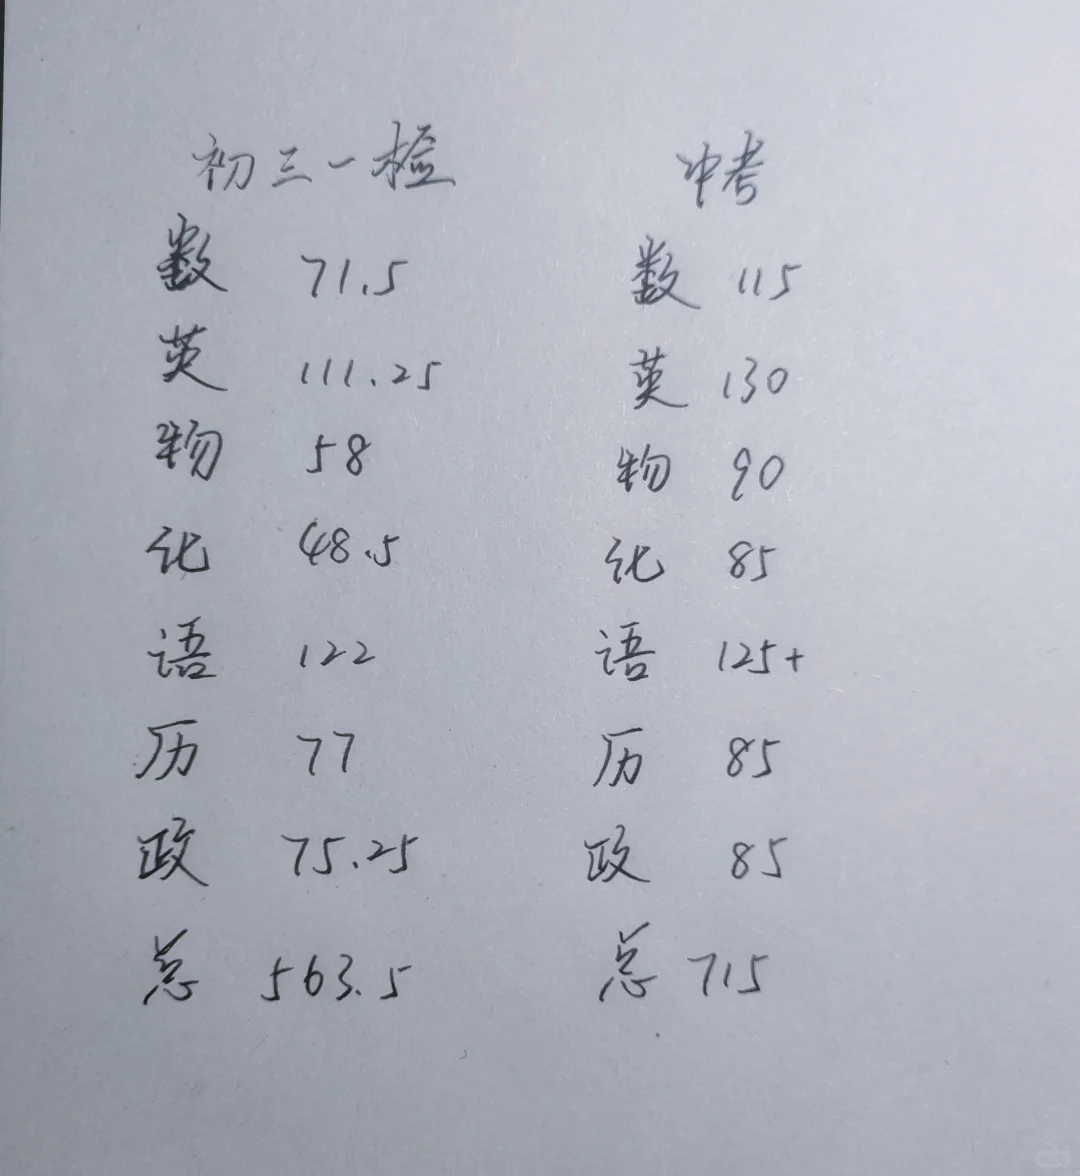 初三一检 中考
数 71.5 数 115
英 111.25 英 130
物 58 物 90
化 48.5 化 85
语 122 语 125+
历 77 历 85
政 75.25 政 85
总 563.5 总 715